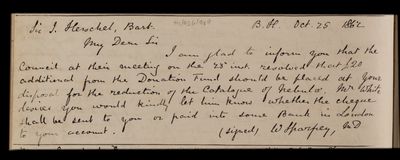 Sir J. Herschel, Bart. B.H. Oct. 25 1862
My Dear Sir
I am glad to inform you that the
Council at their meeting on the 23rd inst. resolved that £20
additional from the Donation Fund should be placed at your
disposal for the reduction of the Catalogue of Nebulæ. Mr White
desires you would kindly let him know whether the cheque
shall be sent to you or paid into some Bank in London
to your account. (signed) W Sharpey, MD